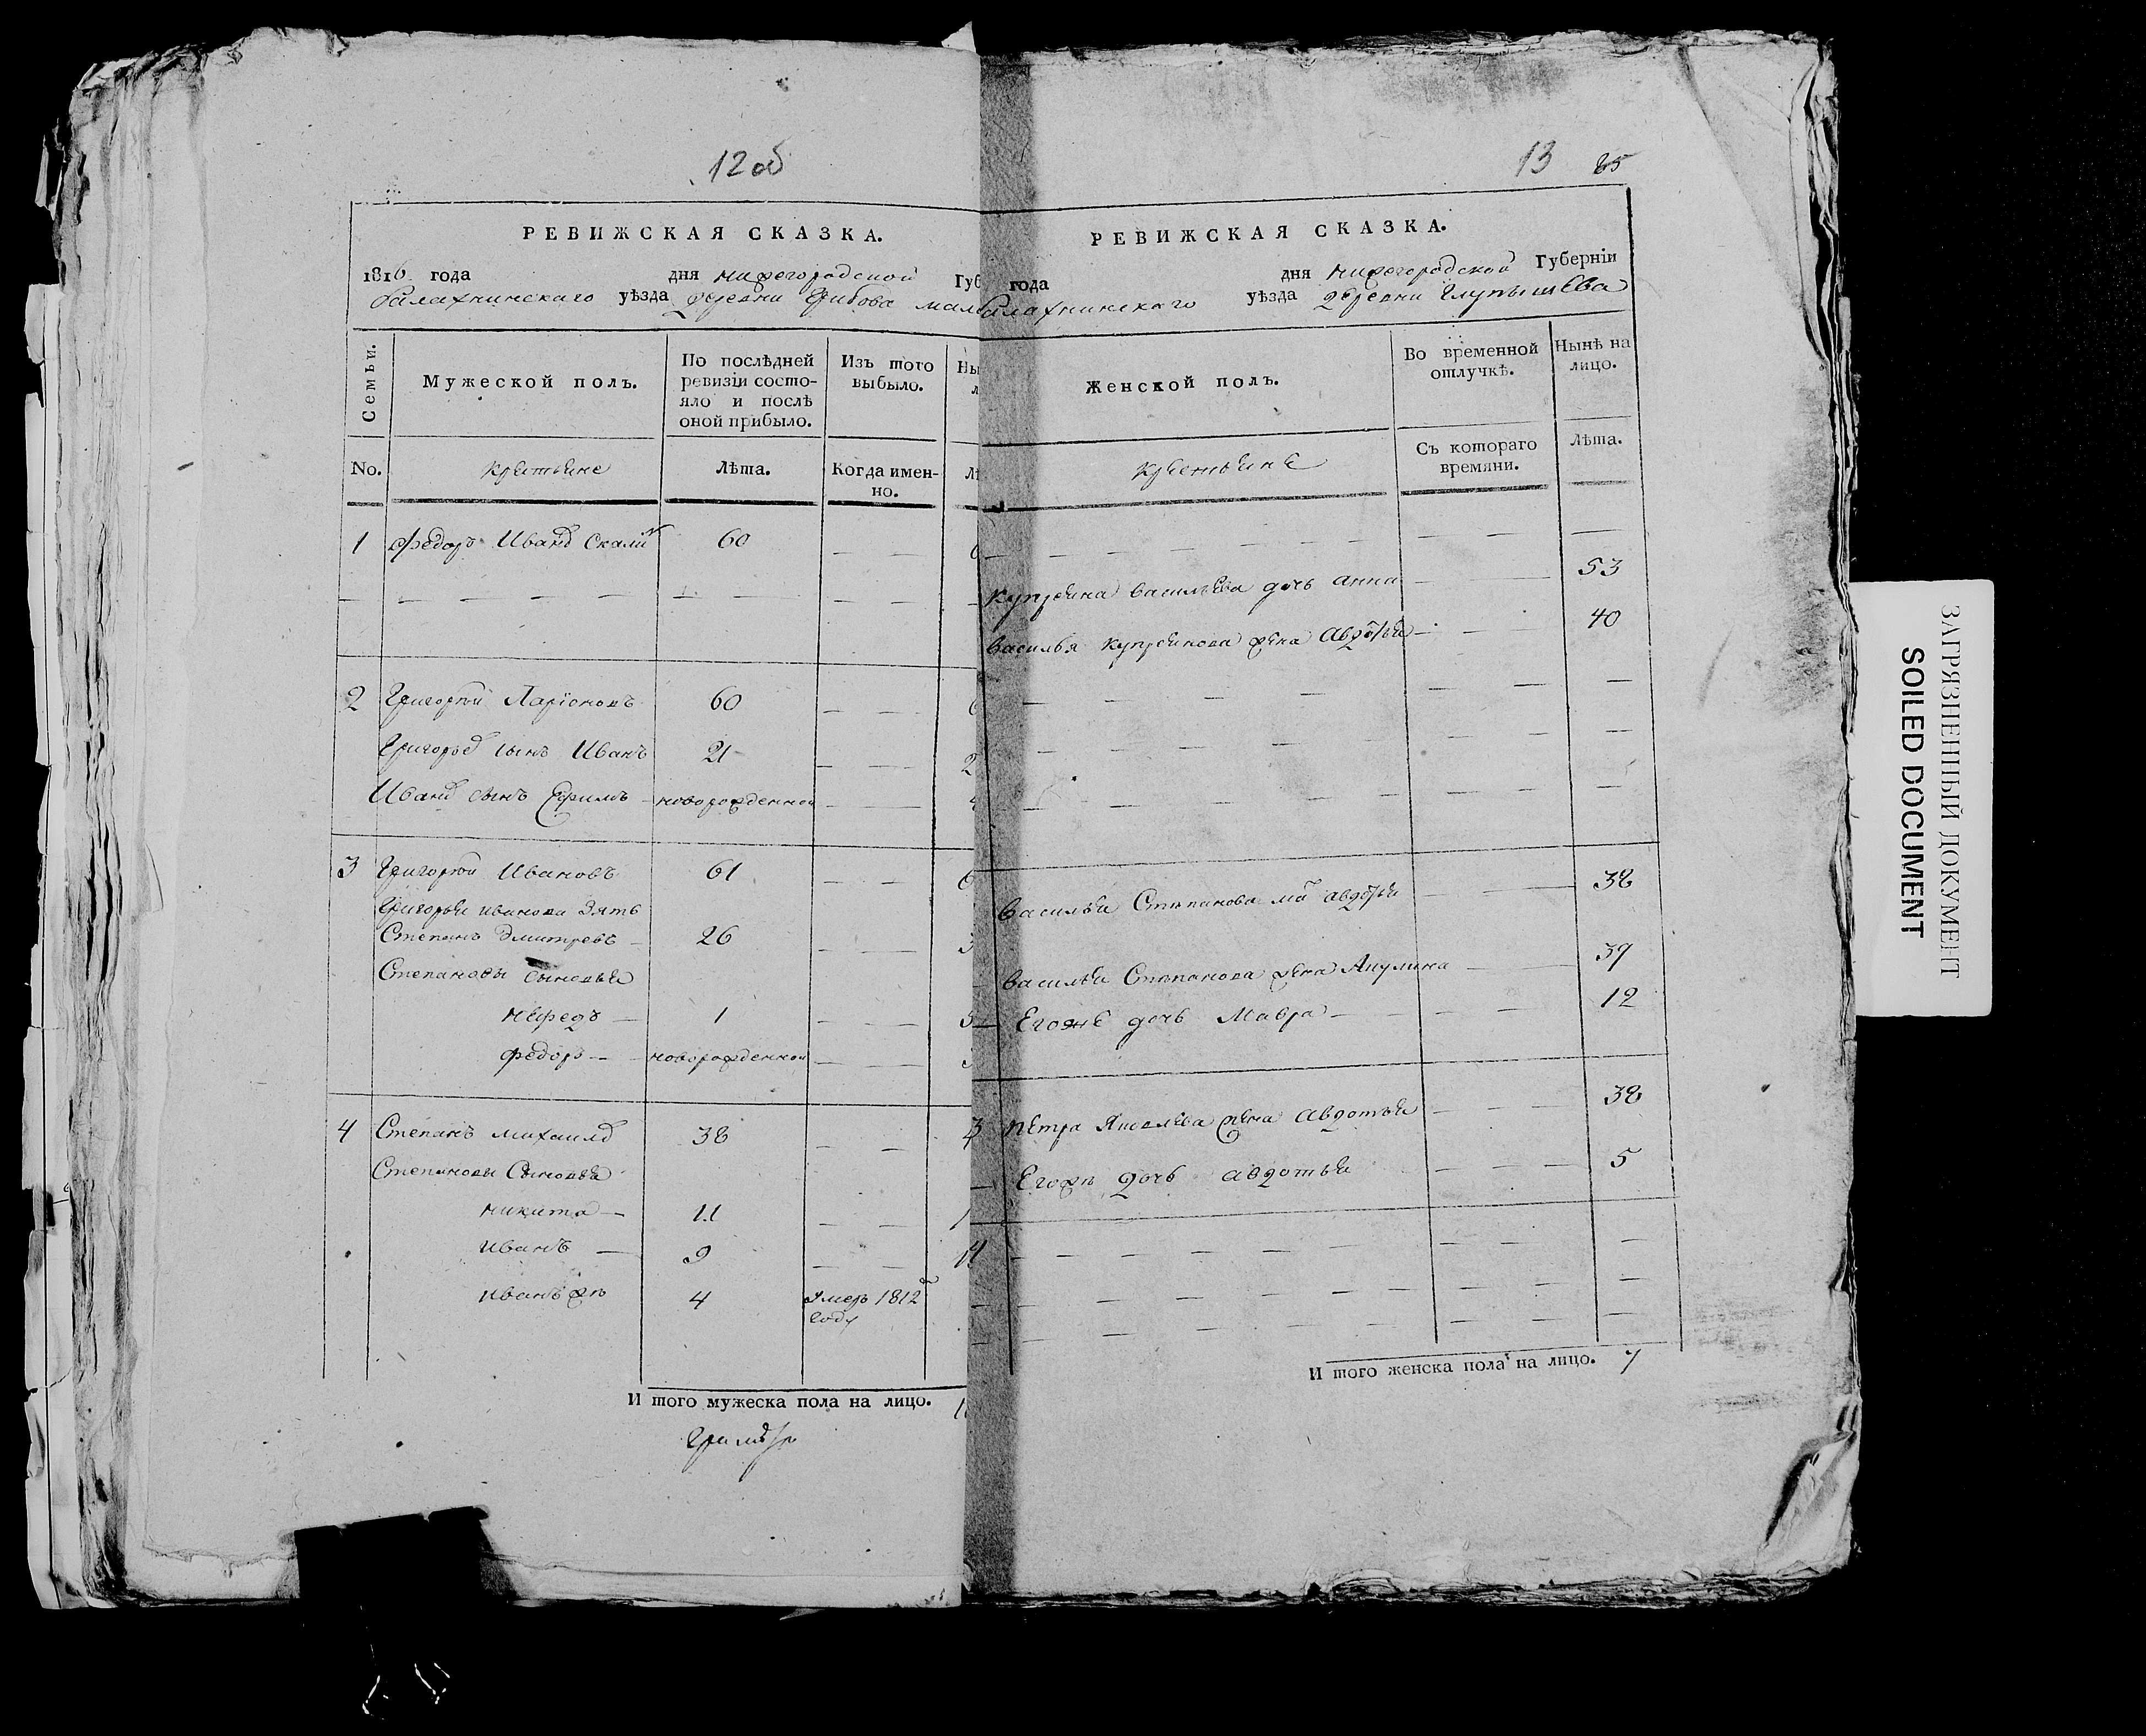 12 об
РЕВИЖСКАЯ СКАЗКА.
1816 года дня нижегородской Губ
балахнинскаго уѣзда деревни Грибова
Семьи.
Мужеской полъ.
По послѣдней ревизіи состо-
яло и послѣ
оной прибыло.
Изъ того
выбыло.
No.
крестьяне
Лѣта.
Когда имен-
но.
1 Федоръ Иванов Скалин 60
2 Григорей Ларіоновъ 60
Григорьев сынъ Иванъ 21
Иванов сынъ Ефимъ новорожденной
3 Григорей Ивановъ 61
Григорья иванова зять
Степанъ Дмитревъ 26
Степановы сыновья
нефедъ 1
федоръ новорожденной
4 Степанъ михаилов 38
Степановы Сыновья
никита 11
иванъ 9
иванъ же 4 умеръ 1812
году
И того мужеска пола на лицо.
13 85
РЕВИЖСКАЯ СКАЗКА.
года дня нижегородской Губерніи
балахнинскаго уѣзда деревни Глупышева
Женской полъ.
Во временной
отлучкѣ.
Нынѣ на
лицо.
крестьяне
Съ котораго
времяни.
Лѣта.
Купреяна васильева дочь анна 53
василья купреянова жена Авдотья 40
василья Степанова мать авдотья 38
василья Степанова жена Акулина 39
Егоже дочь Мавра 12
петра Яковлева жена авдотья 38
Егоже дочь авдотья 5
И того женска пола на лицо. 7
ЗАГРЯЗНЕННЫЙ ДОКУМЕНТ
SOILED DOCUMENT